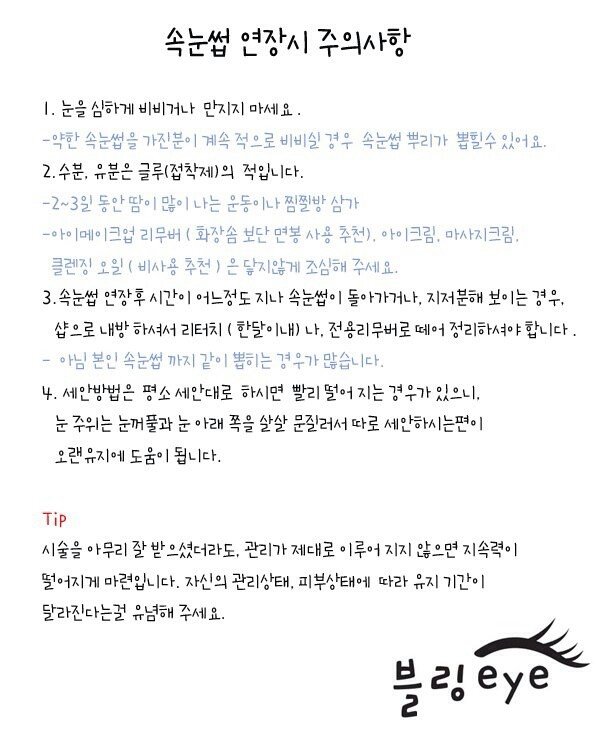 속눈썹 연장시 주의사항
1. 눈을 심하게 비비거나 만지지 마세요.
-약한 속눈썹을 가진분이 계속 적으로 비비실 경우 속눈썹 뿌리가 뽑힐수 있어요.
2.수분, 유분은 글루(접착제)의 적입니다.
-2~3일 동안 땀이 많이 나는 운동이나 찜찔방 삼가
-아이메이크업 리무버 ( 화장솜 보단 면봉 사용 추천), 아이크림, 마사지크림,
클렌징 오일 ( 비사용 추천 ) 은 닿지않게 조심해 주세요.
3.속눈썹 연장후 시간이 어느정도 지나 속눈썹이 돌아가거나, 지저분해 보이는 경우,
샵으로 내방 하셔서 리터치 ( 한달이내) 나, 전용리무버로 떼어 정리하셔야 합니다 .
- 아님 본인 속눈썹 까지 같이 뽑히는 경우가 많습니다.
4. 세안방법은 평소 세안대로 하시면 빨리 떨어 지는 경우가 있으니,
눈 주위는 눈꺼풀과 눈 아래 쪽을 살살 문질러서 따로 세안하시는편이
오랜유지에 도움이 됩니다.
Tip
시술을 아무리 잘 받으셨더라도, 관리가 제대로 이루어 지지 않으면 지속력이
떨어지게 마련입니다. 자신의 관리상태, 피부상태에 따라 유지 기간이
달라진다는걸 유념해 주세요.
블링eye